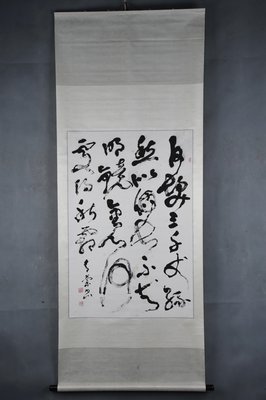 白髮三千丈緣
愁似個長不知
明鏡裏何
處得秋霜